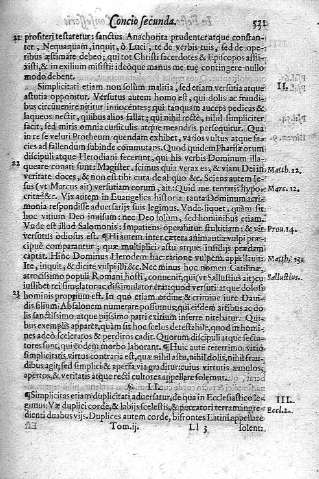 Concio secunda. 531
profiteri testaretur: sanctus Anachorita prudenter atque constan-
ter, Nequaquam, inquit, ô Luci, te de verbis tuis, sed de ope-
ribus æstimare debeo; qui tot Christi sacerdotes & Episcopos afflix-
isti, & in exilium misisti: ideóque manus me tuę contingere nullo
modo debent.
Simplicitati etiam non solum malitia, sed etiam versutia atque II.
astutia opponitur. Versutus autem homo est, qui dolis ac fraudi-
bus circumvenire nititur innocentes; qui tanquam auceps pedicas &
laqueos nectit, quibus alios fallat; qui nihil rectè, nihil simpliciter
facit, sed miris omnia cuniculis
in re se veluti Protheum quendam exhibet, varios vultus atque fa-
cies ad fallendum subinde commutares. Quod quidem Pharisæorum
discipuli atque Herodiani fecerunt, qui his verbis Dominum illa-
22 queare conati sunt: Magister, scimus quia verax es, & viam Dei in Matth. 22.
veritate doces, & non est tibi cura de aliquo &c. Sciens autem Ie-
sus (vt Marcus ait) versutiam eorum, ait: Quid me tentatis hypo- Marc. 12.
critæ? &c. Vix autem in Euangelica historia tanta Dominum acri-
monia respondisse adversarijs suis legimus. Vnde liquet, quàm sit
hoc vitium Deo invisum: nec Deo solùm, sed hominibus etiam.
Vnde est illud Salomonis: Impatiens operabitur stultitiam; & vir Prou. 14.
versutus odiosus est. ¶Hi autem inter cætera animantia vulpi præ-
cipuè comparantur; quæ multiplici astu atque insidijs prædam
captat. Hinc Dominus Herodem hac ratione vulpem appellavit: Matth. 13.
Ite, inquit, & dicite vulpi illi &c. Nec minus hoc nomen Catilinæ,
atrocissimo populi Romani hosti, convenit, qui, vt Sallustius ait, cu- Sallustius.
iuslibet rei simulator ac dissimulator erat: quod versuti atque dolosi
23 hominis proprium est. In quo etiam ordine & crimine iure Davi-
dis filium Absalonem numerare possumus; qui eisdem artibus ac do-
lis sanctissimo atque pijssimo patri exitium inferre nitebatur. Qui-
bus exemplis apparet, quàm sit hoc scelus detestabile, quod in homi-
nes adeò sceleratos & perditos cadit. Quorum discipuli atque secta-
tores sunt, qui eodem morbo laborant. ¶Huic autē teterrimo vitio
simplicitatis virtus contraria est, quæ nihil astu, nihil dolis, nihil frau-
dibus agit, sed simplici & aperta via graditur: cuius virtutis æmulos,
apertos, & veritatis atque recti cultores appellare solemus.
§. II.
¶Simplicitati etiam duplicitas adversatur, de qua in Ecclesiastico le- III.
gimus: Væ duplici corde, & labijs scelestis, & peccatori terram ingre- Eccl. 2.
dienti duabus vijs. Duplices autem corde, bifrontes Latini appellare
Tom. ij. Ll 3 solent: